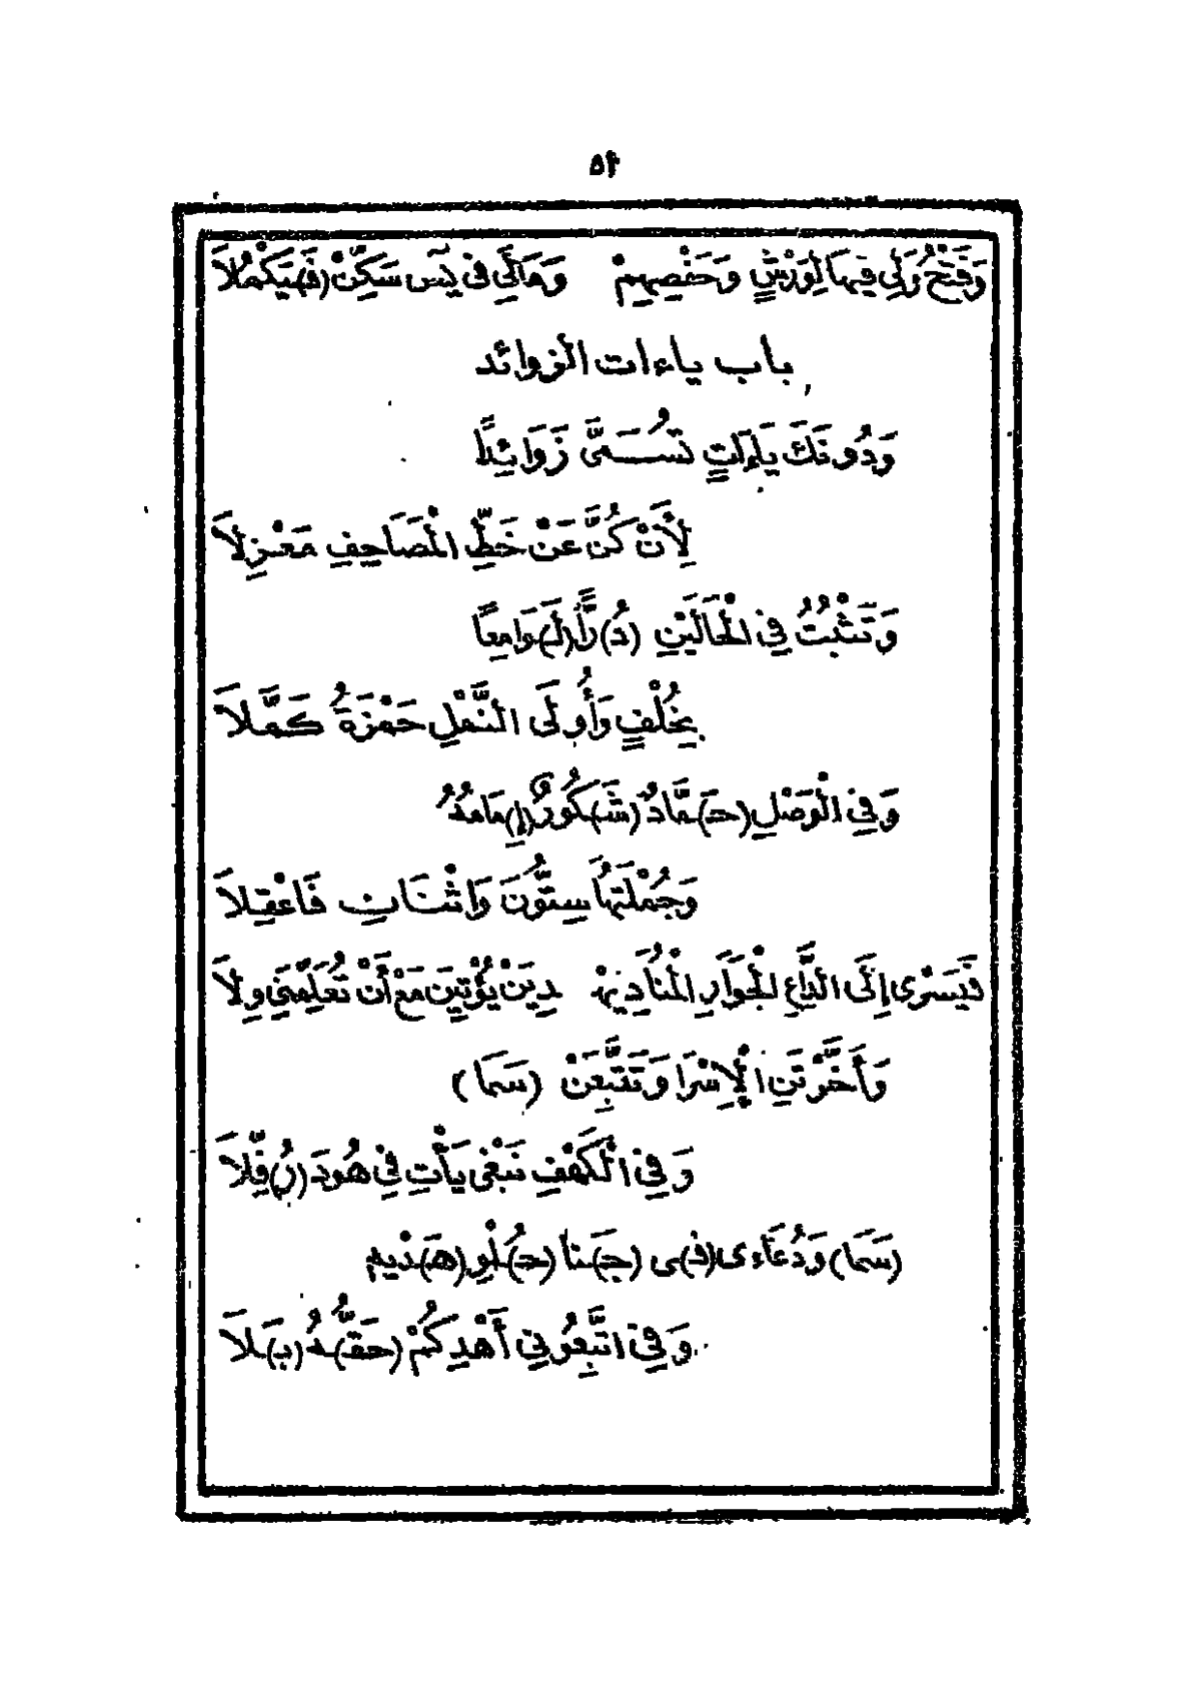 ٥٢
وَفَتْحُ وَلِي فِيهَا لِوَرْشٍ وَحَفْصِهِمْ وَمَالِيَ فِي يٓسٓ سَكِّنْ (فَ)تَكْمُلَا
باب ياءات الزوائد
وَدُونَكَ يَاءَاتٍ تُسَمَّى زَوَائِدًا
لِأَنْ كُنَّ عَنْ خَطِّ الْمَصَاحِفِ مَعْزِلَا
وَتَثْبُتُ فِي الْحَالَيْنِ (دُ)رًّا (لَ)وَامِعًا
بِخُلْفٍ وَأُولَى النَّمْلِ حَمْزَةُ كَمَّلَا
وَفِي الْوَصْلِ (حَ)مَّادٌ (شَ)كُورٌ (إِ)مَامُهُ
وَجُمْلَتُهَا سِتُّونَ وَاثْنَانِ فَاعْقِلَا
فَيَسْرِى إِلَى الدَّاعِ الْجَوَارِ الْمُنَادِ يَهْدِيَنْ يُؤْتِيَنْ مَعْ أَنْ تُعَلِّمَنِي وِلَا
وَأَخَّرْتَنِ الْإِسْرَا وَتَتَّبِعَنْ (سَمَا)
وَفِي الْكَهْفِ نَبْغِى يَأْتِ فِي هُودَ (رُ)فِّلَا
(سَمَا) وَدُعَاءِى (فِ)ى (جَ)نَا (حُ)لْوِ (هَ)دْيِهِ
وَفِي اتَّبِعُونِي أَهْدِكُمْ (حَقُّ)هُ (بَ)لَا